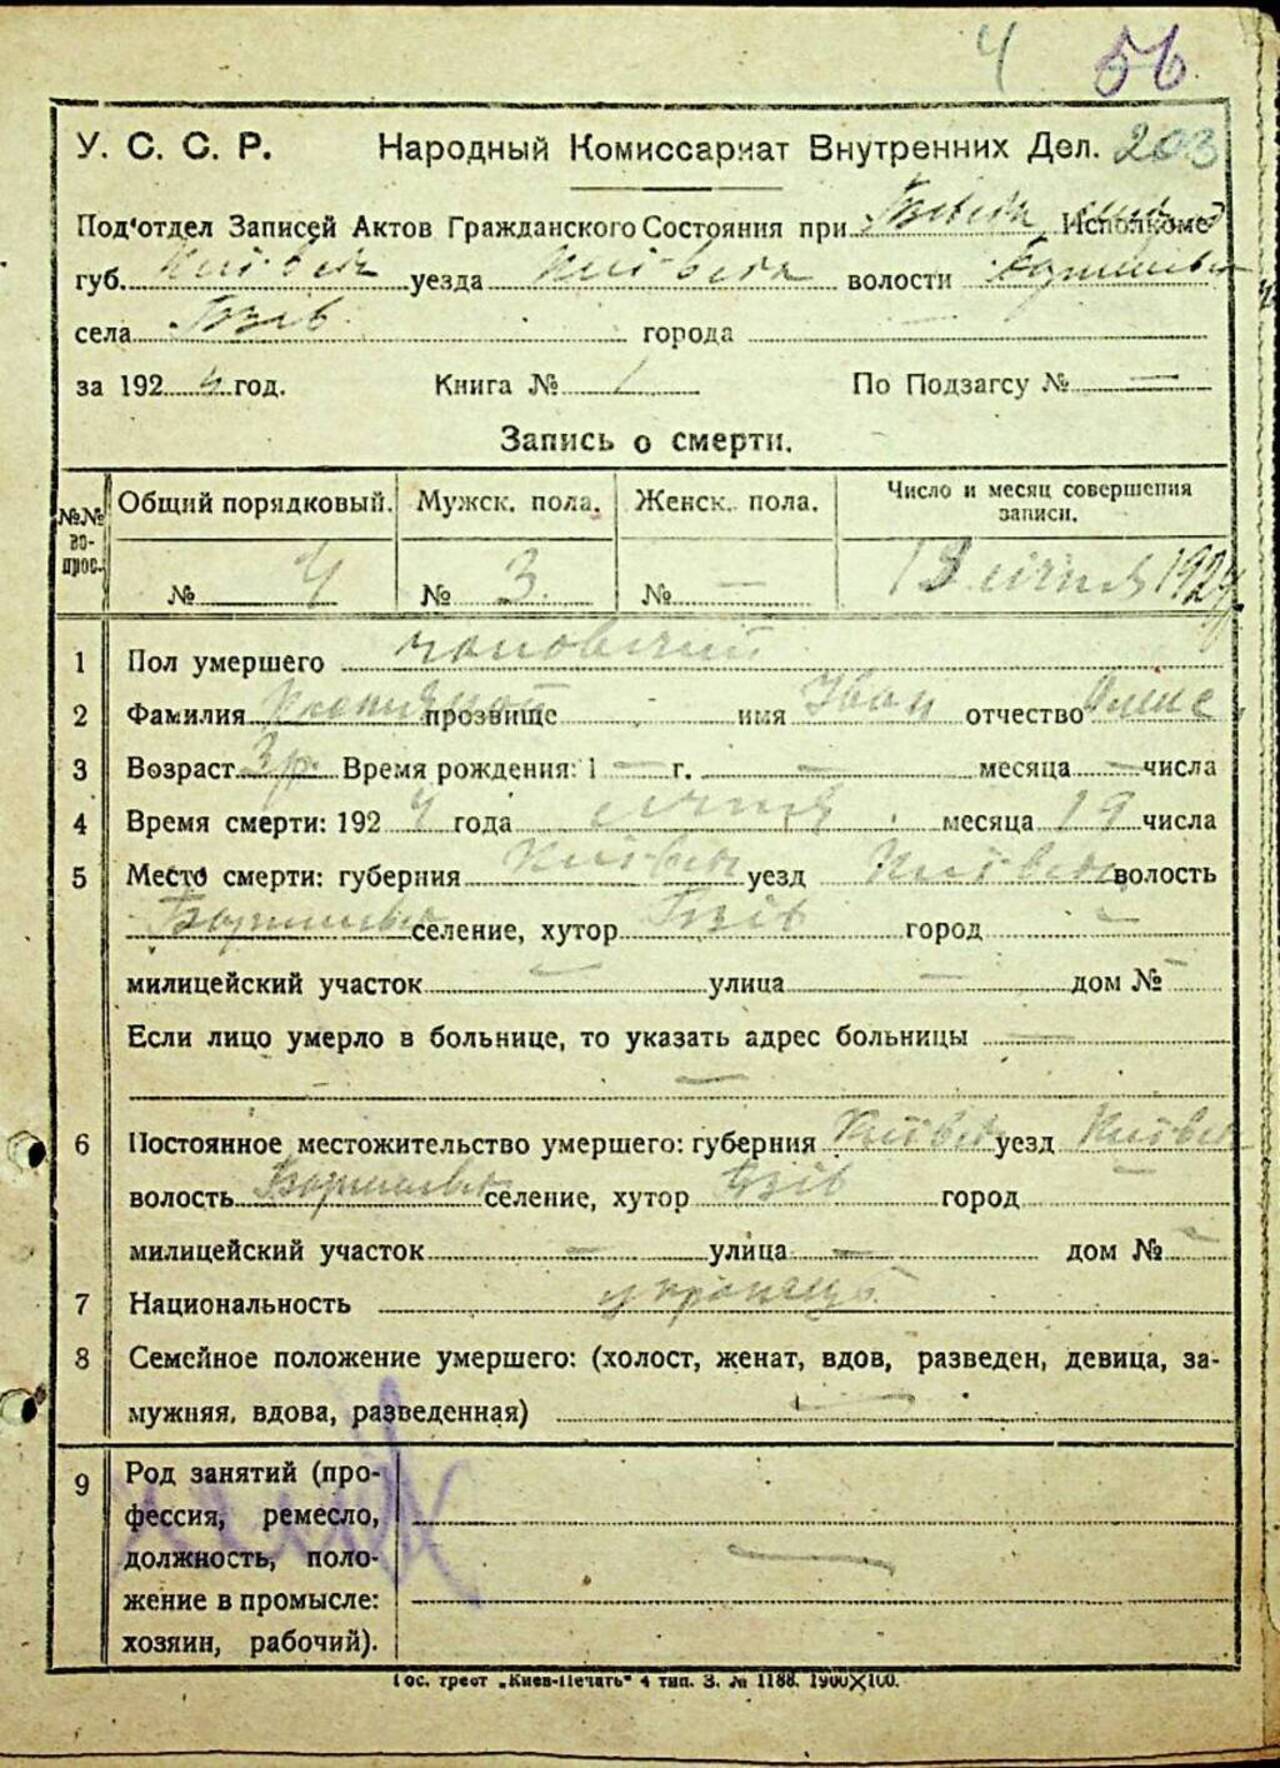 4 56
У. С. С. Р. Народный Комиссариат Внутренних Дел. 203
Под'отдел Записей Актов Гражданского Состояния при Исполкоме
губ. Київська уезда Київська волости
села Бзів города —
за 1924 год. Книга № 1 По Подзагсу № —
Запись о смерти.
№№ вопрос. Общий порядковый. Мужск. пола. Женск. пола. Число и месяц совершения записи.
№ 4 № 3. № — 19 січня 1924.
1 Пол умершего чоловічий
2 Фамилия прозвище имя Іван отчество
3 Возраст 3 р. Время рождения: 1 — г. — месяца — числа
4 Время смерти: 1924 года січня месяца 19 числа
5 Место смерти: губерния Київська уезд Київська волость
селение, хутор Бзів город —
милицейский участок — улица — дом № —
Если лицо умерло в больнице, то указать адрес больницы —
—
6 Постоянное местожительство умершего: губерния Київська уезд Київська
волость селение, хутор Бзів город —
милицейский участок — улица — дом № —
7 Национальность українець
8 Семейное положение умершего: (холост, женат, вдов, разведен, девица, за-
мужняя, вдова, разведенная) —
9 Род занятий (про-
фессия, ремесло,
должность, поло- —
жение в промысле:
хозяин, рабочий).
Гос. трест „Киев-Печать" 4 тип. З. № 1188. 1900×100.